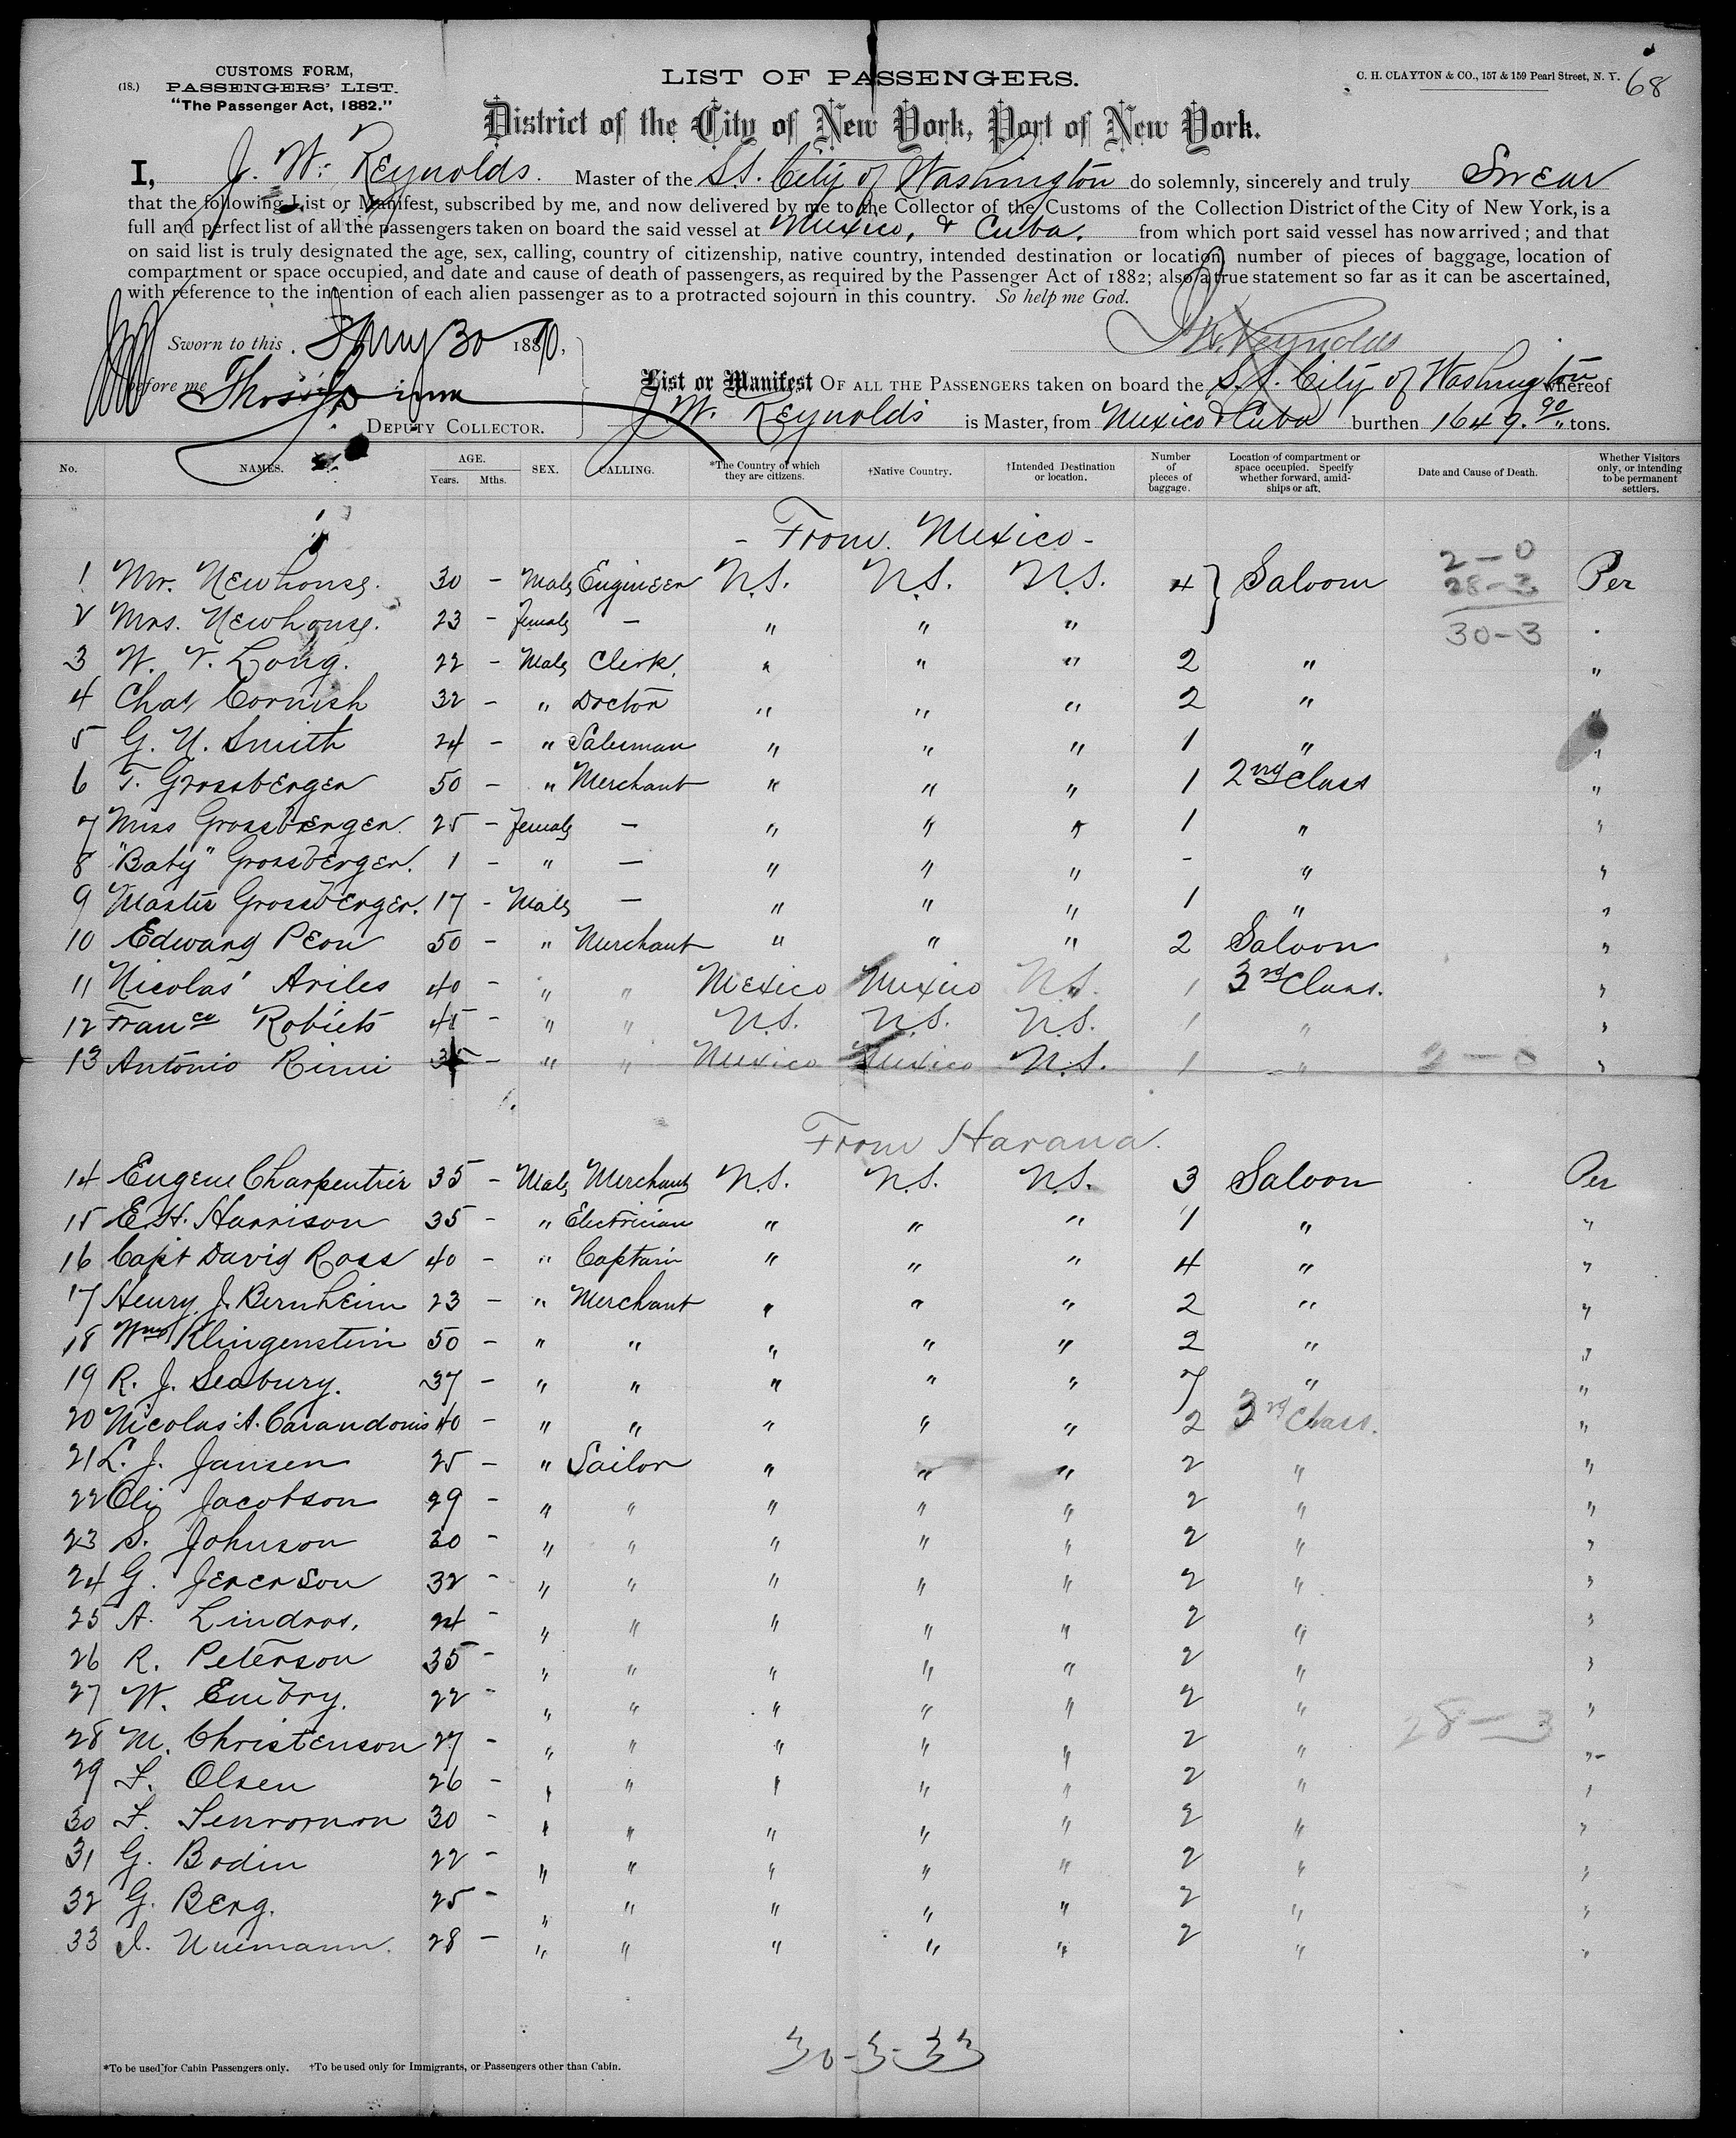 (18.) CUSTOMS FORM,
PASSENGERS' LIST.
"The Passenger Act, 1882."
LIST OF PASSENGERS.
C. H. CLAYTON & CO., 157 & 159 Pearl Street, N. Y. 68
District of the City of New York, Port of New York.
I, J. W. Reynolds. Master of the S.S. City of Washington do solemnly, sincerely and truly Swear
that the following List or Manifest, subscribed by me, and now delivered by me to the Collector of the Customs of the Collection District of the City of New York, is a
full and perfect list of all the passengers taken on board the said vessel at Mexico, & Cuba. from which port said vessel has now arrived; and that
on said list is truly designated the age, sex, calling, country of citizenship, native country, intended destination or location, number of pieces of baggage, location of
compartment or space occupied, and date and cause of death of passengers, as required by the Passenger Act of 1882; also a true statement so far as it can be ascertained,
with reference to the intention of each alien passenger as to a protracted sojourn in this country. So help me God.
J W Reynolds
Sworn to this 30 1890,
before me Thos
DEPUTY COLLECTOR.
List or Manifest OF ALL THE PASSENGERS taken on board the S.S. City of Washington whereof
J. W. Reynolds is Master, from Mexico & Cuba burthen 1649.90 tons.
No. NAMES. AGE. Years. Mths. SEX. CALLING. *The Country of which they are citizens. †Native Country. †Intended Destination or location. Number of pieces of baggage. Location of compartment or space occupied. Specify whether forward, amidships or aft. Date and Cause of Death. Whether Visitors only, or intending to be permanent settlers.
- From Mexico -
2-0
1 Mr. Newhouse. 30 - Male Engineer U.S. U.S. U.S. 4 } Saloon 28-3 Per
2 Mrs. Newhouse. 23 - Female - " " " 30-3 "
3 W. V. Long. 22 - Male Clerk. " " " 2 " "
4 Chas Cornish 32 - " Doctor " " " 2 " "
5 G. N. Smith 24 - " Salesman " " " 1 " "
6 T. Grossberger 50 - " Merchant " " " 1 2nd Class "
7 Miss Grossberger. 25 - Female - " " " 1 " "
8 "Baby" Grossberger. 1 - " - " " " - " "
9 Master Grossberger. 17 - Male - " " " 1 " "
10 Edward Peon 50 - " Merchant " " " 2 Saloon "
11 Nicolas Ariles 40 - " " Mexico Mexico U.S. 1 3rd Class. "
12 Franco Robiets 45 - " " U.S. U.S. U.S. 1 " "
13 Antonio Rimi 35 - " " Mexico Mexico U.S. 1 " 2-0 "
From Havana.
14 Eugene Charpentier 35 - Male Merchant U.S. U.S. U.S. 3 Saloon Per
15 E. H. Harrison 35 - " Electrician " " " 1 " "
16 Capt David Ross 40 - " Captain " " " 4 " "
17 Henry J. Bernheim 23 - " Merchant " " " 2 " "
18 Wm Klingenstein 50 - " " " " " 2 " "
19 R. J. Seabury. 37 - " " " " " 7 " "
20 Nicolas A. Carandonis 40 - " " " " " 2 3rd Class. "
21 L. J. Jansen 25 - " Sailor " " " 2 " "
22 Oli Jacobson 29 - " " " " " 2 " "
23 S. Johnson 30 - " " " " " 2 " "
24 G. Jererson 32 - " " " " " 2 " "
25 A. Lindros. 24 - " " " " " 2 " "
26 R. Peterson 35 - " " " " " 2 " "
27 W. Embry. 22 - " " " " " 2 " "
28 M. Christenson 27 - " " " " " 2 " 28-3 "
29 F. Olsen 26 - " " " " " 2 " "
30 F. 30 - " " " " " 2 " "
31 G. Bodin 22 - " " " " " 2 " "
32 G. Berg. 25 - " " " " " 2 " "
33 I. Niemann. 28 - " " " " " 2 " "
30-3-33
*To be used for Cabin Passengers only. †To be used only for Immigrants, or Passengers other than Cabin.